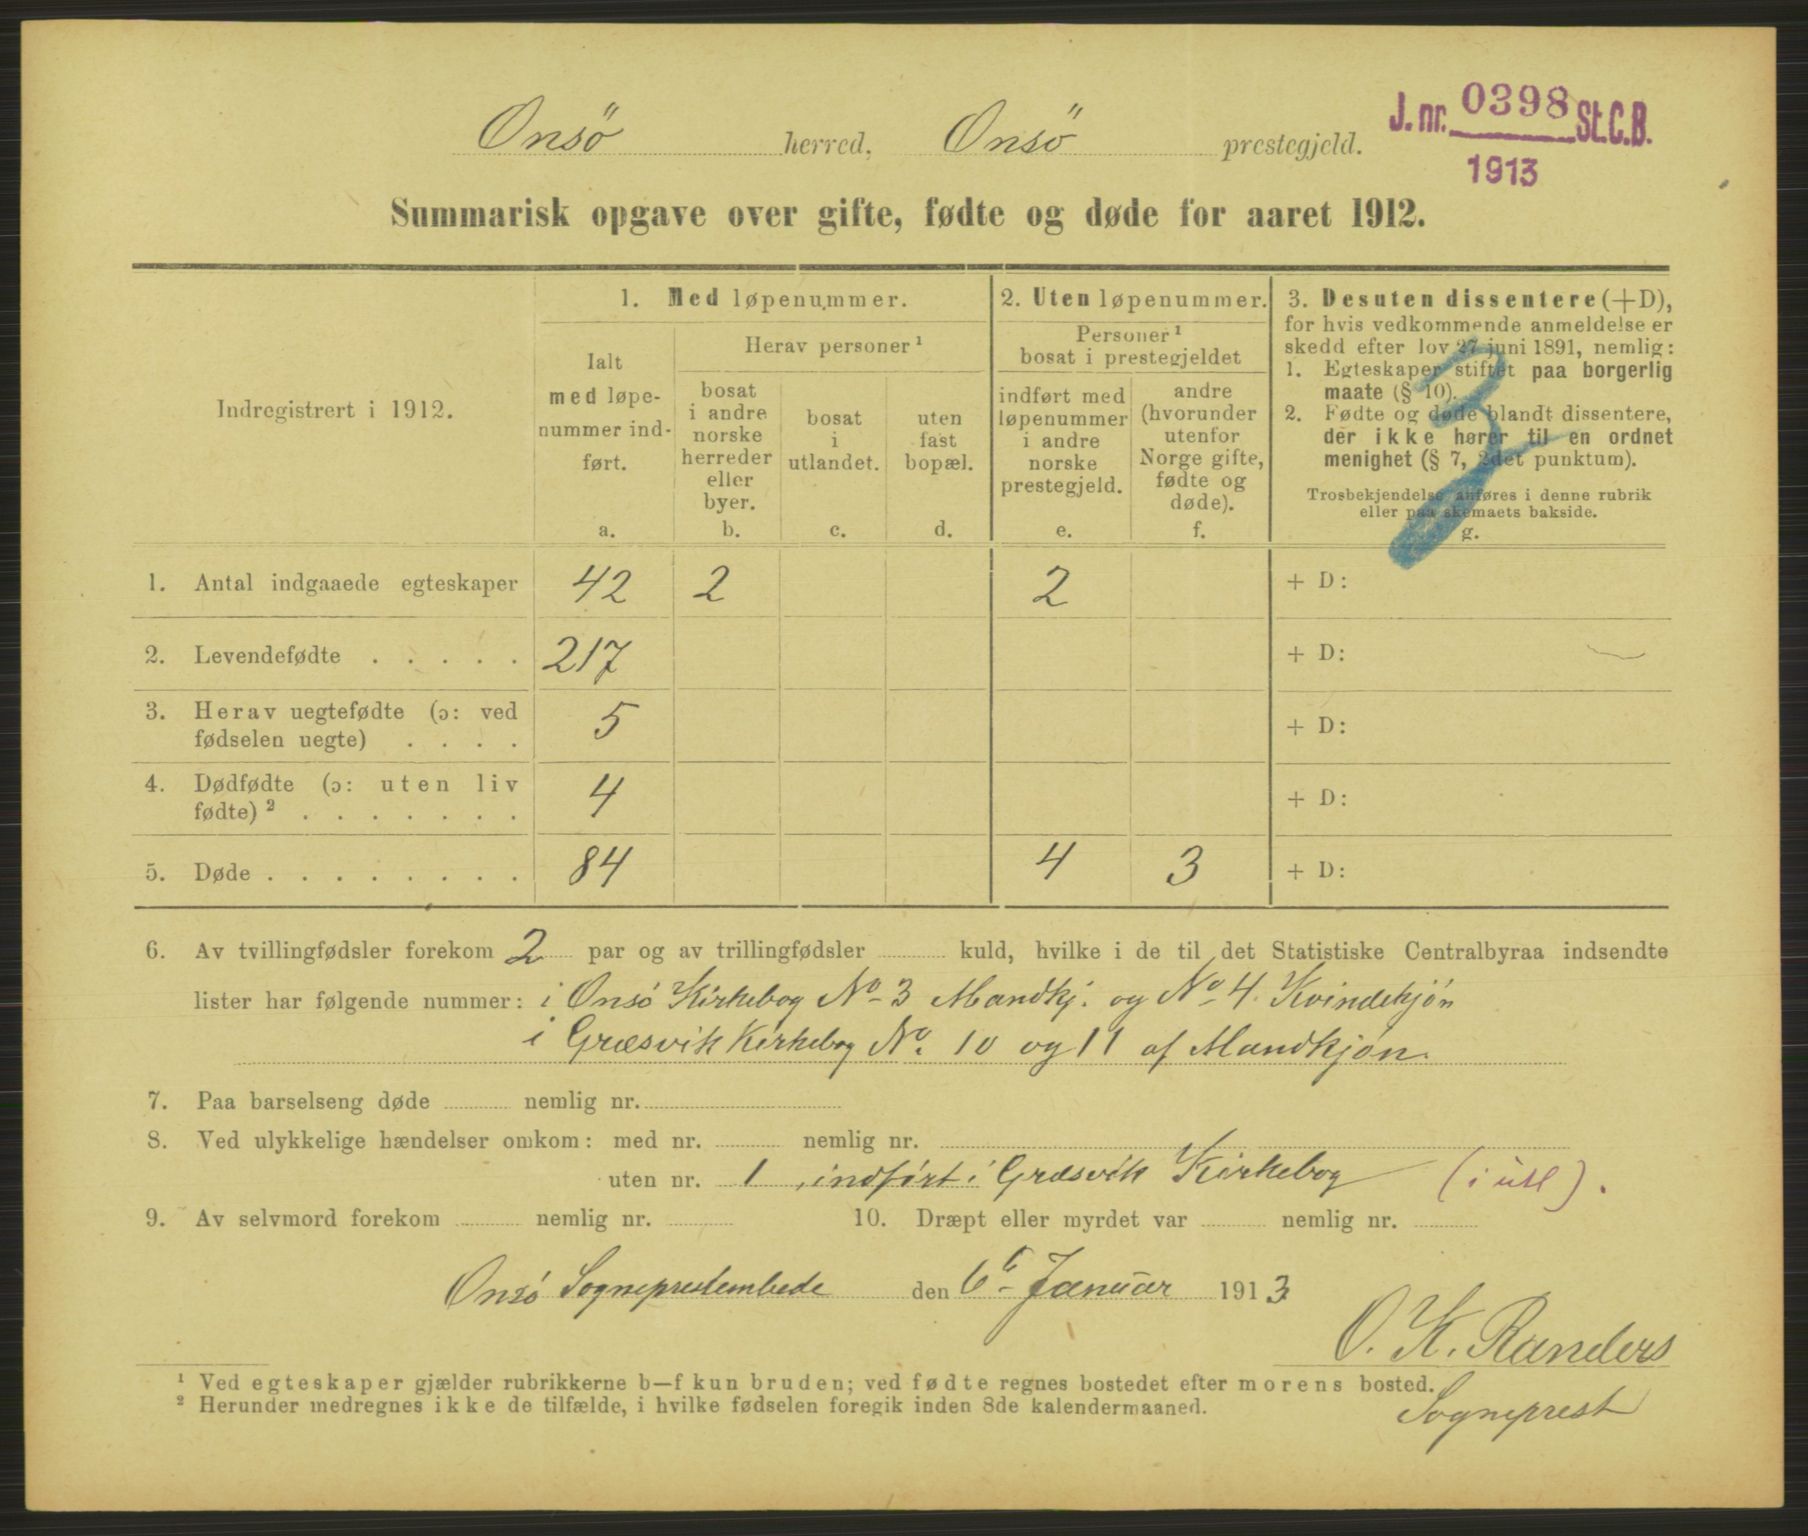 Onsö herred, Onsö prestegjeld.
J. nr. 0398 St. C. B.
1913
Summarisk opgave over gifte, fødte og døde for aaret 1912.
Indregistrert i 1912.
1. Med løpenummer.
Ialt
med løpe-
nummer ind-
ført.
a.
Herav personer ¹
bosat
i andre
norske
herreder
eller
byer.
b.
bosat
i
utlandet.
c.
uten
fast
bopæl.
d.
2. Uten løpenummer.
Personer ¹
bosat i prestegjeldet
indført med
løpenummer
i andre
norske
prestegjeld.
e.
andre
(hvorunder
utenfor
Norge gifte,
fødte og
døde).
f.
3. Desuten dissentere (+D),
for hvis vedkommende anmeldelse er
skedd efter lov 27 juni 1891, nemlig:
1. Egteskaper stiftet paa borgerlig
maate (§ 10).
2. Fødte og døde blandt dissentere,
der ikke hører til en ordnet
menighet (§ 7, 2det punktum).
Trosbekjendelse anføres i denne rubrik
eller paa skemaets bakside.
g.
1. Antal indgaaede egteskaper 42 2 2 + D:
2. Levendefødte . . . . . 217 + D:
3. Herav uegtefødte (ɔ: ved
fødselen uegte) . . . . 5 + D:
4. Dødfødte (ɔ: uten liv
fødte) ² . . . . . . . 4 + D:
5. Døde . . . . . . . . 84 4 3 + D:
6. Av tvillingfødsler forekom 2 par og av trillingfødsler kuld, hvilke i de til det Statistiske Centralbyraa indsendte
lister har følgende nummer: i Onsö Kirkebog No 3 Mandkj. og No 4. Kvindekjön
i Græsvik Kirkebog No. 10 og 11 af Mandkjön.
7. Paa barselseng døde nemlig nr.
8. Ved ulykkelige hændelser omkom: med nr. nemlig nr.
uten nr. 1, indfört i Græsvik Kirkebog (i utl).
9. Av selvmord forekom nemlig nr. 10. Dræpt eller myrdet var nemlig nr.
Onsö Sogneprestembede den 6te Januar 1913
O. K. Randers
Sogneprest
¹ Ved egteskaper gjælder rubrikkerne b—f kun bruden; ved fødte regnes bostedet efter morens bosted.
² Herunder medregnes ikke de tilfælde, i hvilke fødselen foregik inden 8de kalendermaaned.